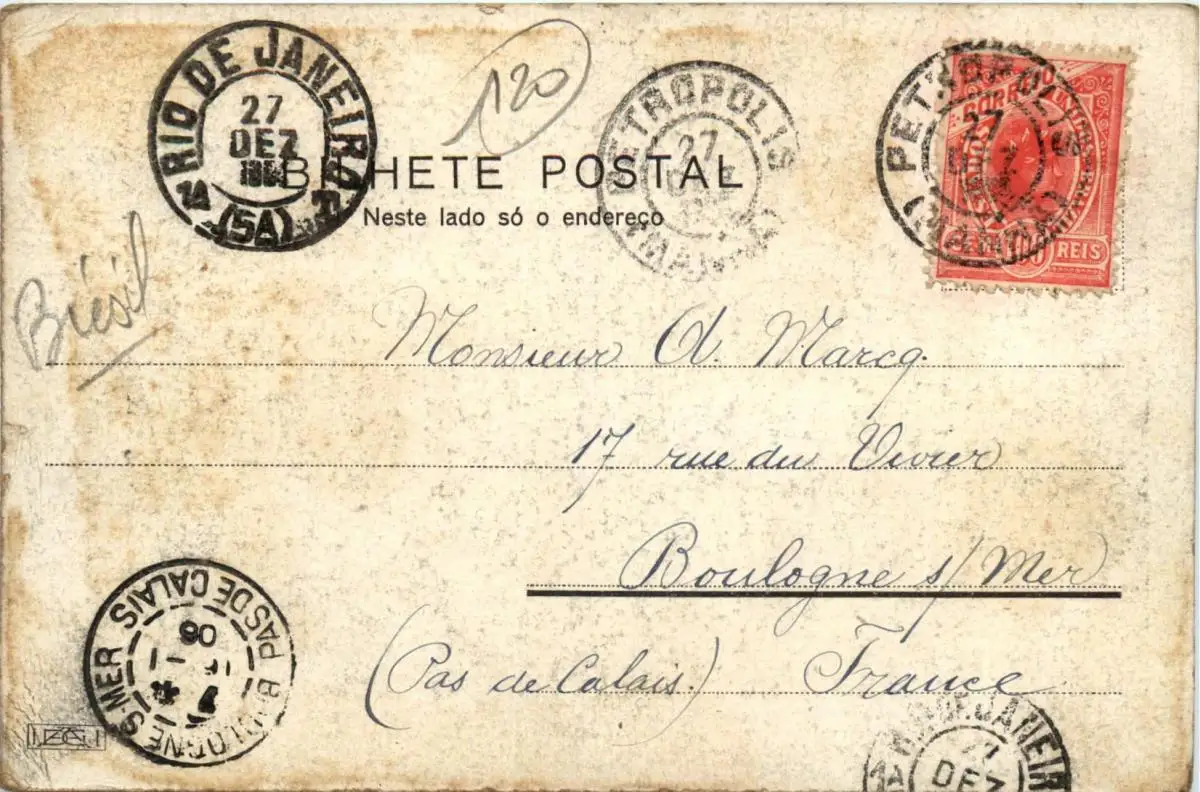 RIO DE JANEIRO
27
DEZ
(5A)
120
PETROPOLIS
27
PETROPOLIS
27
DEZ
(MANHÃ)
CORREIO
100 REIS
BILHETE POSTAL
Neste lado só o endereço
Brésil
Monsieur A. Marcq.
17 rue du Vivier
Boulogne s/Mer
(Pas de Calais.) France
BOULOGNE S MER PAS DE CALAIS
06
JANEIRO
27
DEZ